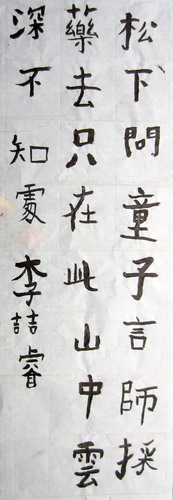 松下問童子言師採
藥去只在此山中雲
深不知處 李喆睿